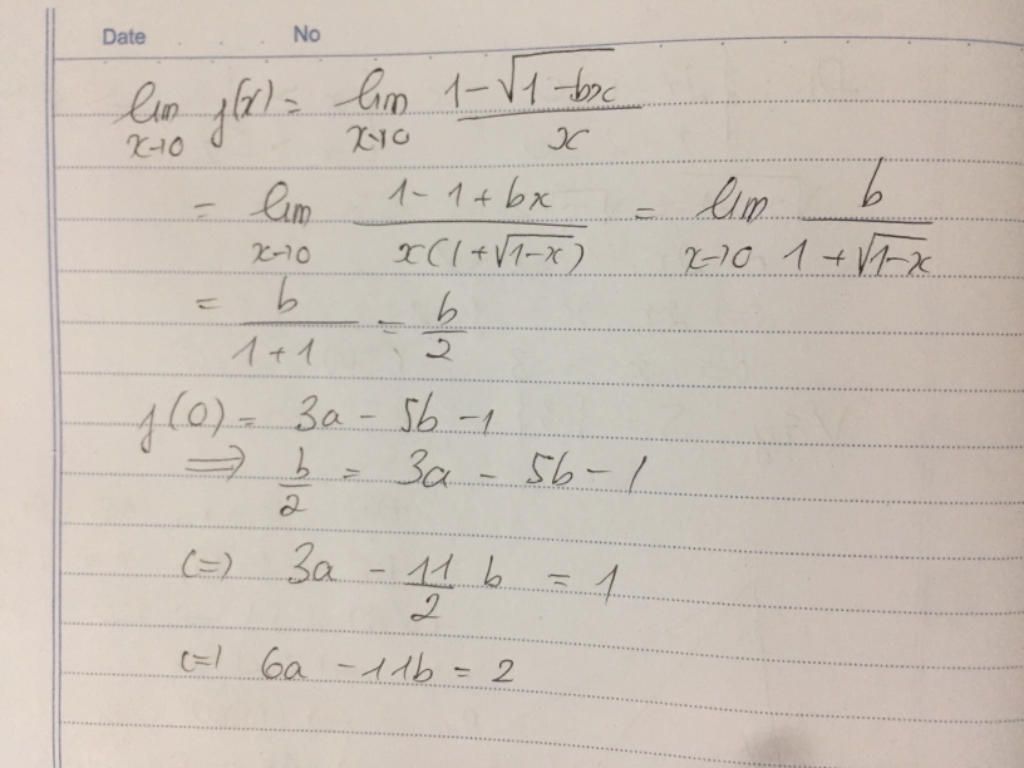 Date No
lim x→0 f(x) = lim x→0 (1-√(1-bx))/x
= lim x→0 (1-1+bx)/(x(1+√(1-x))) = lim x→0 b/(1+√(1-x))
= b/(1+1) = b/2
f(0) = 3a - 5b - 1
⇒ b/2 = 3a - 5b - 1
(=) 3a - 11/2 b = 1
(=) 6a - 11b = 2